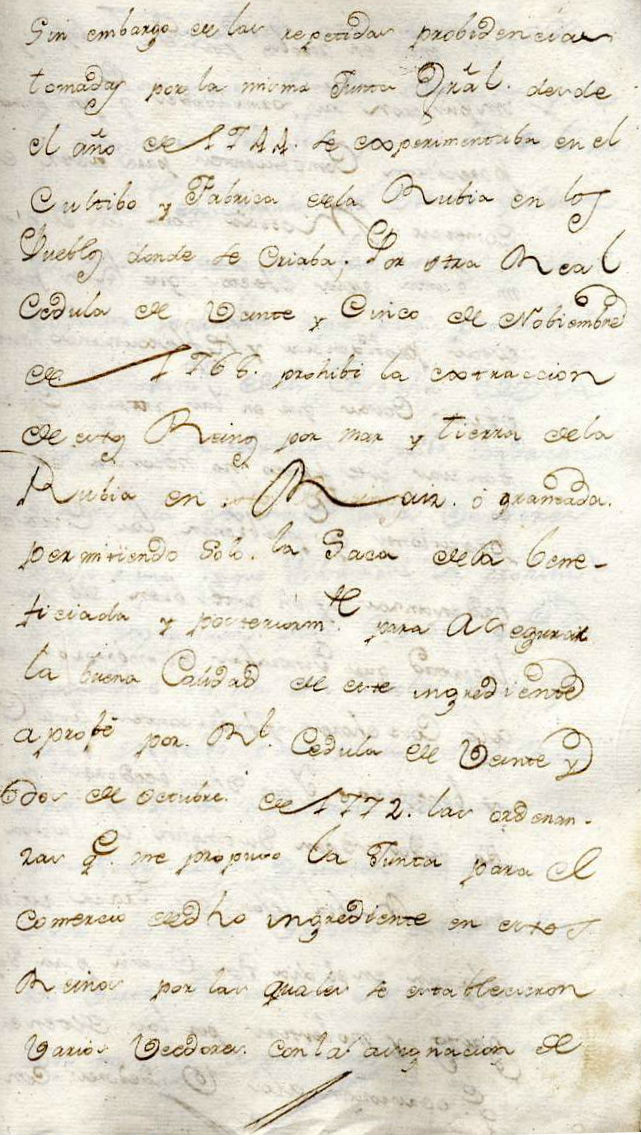 Sin embargo de las repetidas probidencias
tomadas por la misma Junta Grâl. desde
el año de 1744. se experimentaba en el
Cultibo y Fabrica dela Rubia en los
Pueblos donde se Criaba; Por otra Real
Cedula de Veinte y Cinco de Nobiembre
de 1766. prohibi la extraccion
de estos Reinos por mar y tierra dela
Rubia en Raiz. ó graneada.
permitiendo solo. la Saca dela bene-
ficiada y posteriormte. para Asegurar
la buena Calidad de este ingrediente
aprobé por. Rl. Cedula de Veinte y
dos de octubre. de 1772. las ordenan-
zas qe. me propuso la Junta para el
Comercio dedho ingrediente en estos
Reinos por las quales se establecieron
Varios Veedores. con la asignacion de